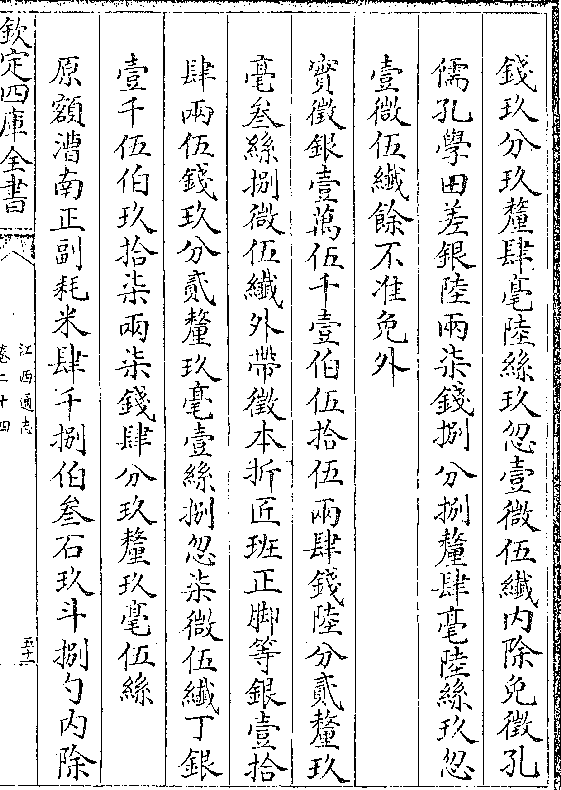 錢玖分玖釐肆毫陸絲玖忽壹微伍纖内除免徵孔
儒孔學田差銀陸兩柒錢捌分捌釐肆毫陸絲玖忽
壹微伍纖餘不准免外
實徵銀壹萬伍千壹伯伍拾伍兩肆錢陸分貳釐玖
毫叁絲捌微伍纖外帶徵本折匠班正脚等銀壹拾
肆兩伍錢玖分貳釐玖毫壹絲捌忽柒微伍纖丁銀
壹千伍伯玖拾柒兩柒錢肆分玖釐玖毫伍絲
原額漕南正副耗米肆千捌伯叁石玖斗捌勺内除
欽定四庫全書
江西通志
卷二十四
五十二